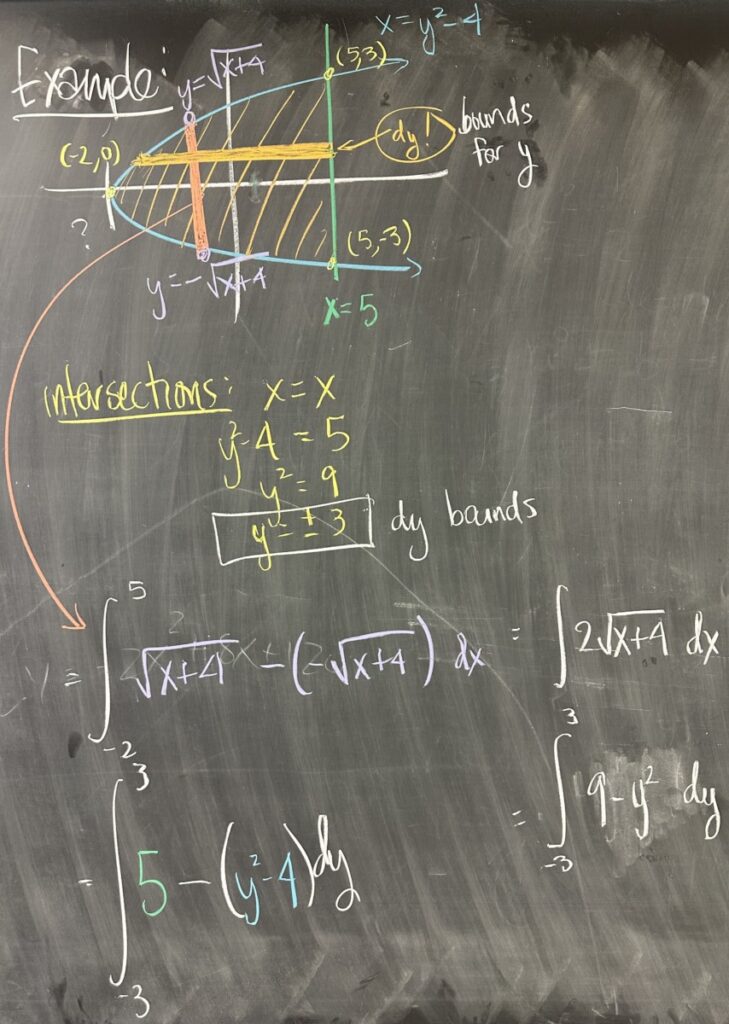 Example:
x = y² - 4
y = √x+4
(5,3)
(-2,0)
dy!
bounds
for y
?
(5,-3)
y = -√x+4
x = 5
intersections: x = x
y² - 4 = 5
y² = 9
y = ± 3 dy bounds
= ∫_{-2}^{5} √x+4 - (-√x+4) dx = ∫ 2√x+4 dx
= ∫_{-3}^{3} 5 - (y² - 4) dy = ∫_{-3}^{3} 9 - y² dy